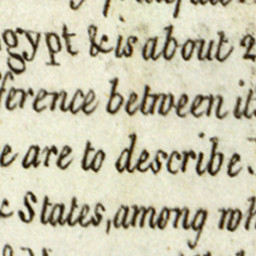 gypt & is about 2
ference between it
e are to describe.
& States, among wh